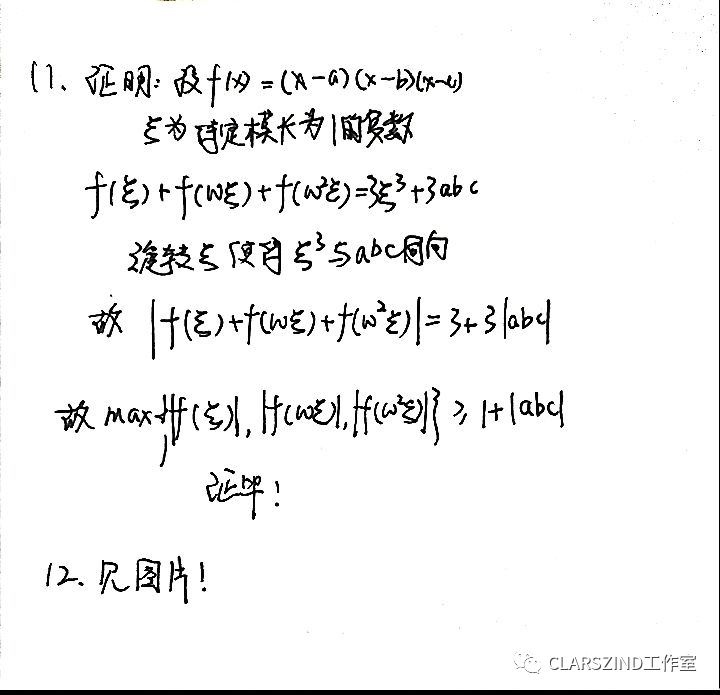 11. 证明: 设f(x)=(x-a)(x-b)(x-c)
ξ为待定模长为1的复数
f(ξ)+f(ωξ)+f(ω²ξ)=3ξ³+3abc
旋转ξ使得ξ³与abc同向
故 |f(ξ)+f(ωξ)+f(ω²ξ)|=3+3|abc|
故 max{|f(ξ)|,|f(ωξ)|,|f(ω²ξ)|}≥1+|abc|
证毕!
12. 见图片!
CLARSZIND工作室